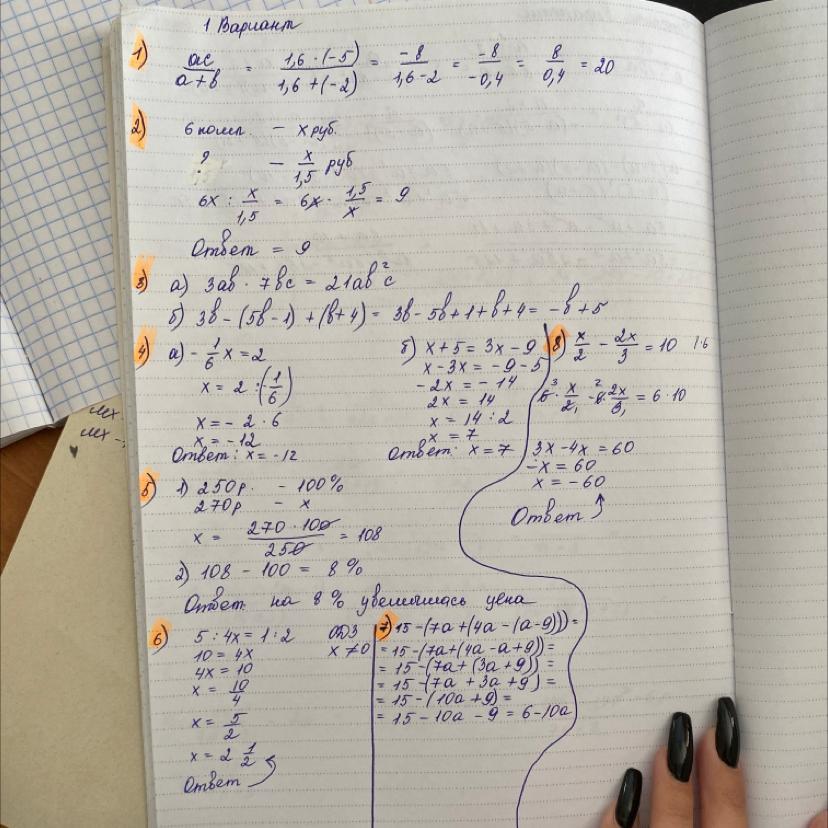 1 Вариант
1) ac/(a+b) = 1,6·(-5)/(1,6+(-2)) = -8/(1,6-2) = -8/-0,4 = 8/0,4 = 20
2) 6 комп. – x руб.
? – x/1,5 руб
6x : x/1,5 = 6x · 1,5/x = 9
Ответ = 9
3) а) 3ab · 7bc = 21ab²c
б) 3b - (5b-1) + (b+4) = 3b - 5b + 1 + b + 4 = -b + 5
4) а) -1/6 x = 2
x = 2 : (-1/6)
x = - 2 · 6
x = -12
Ответ: x = -12
б) x + 5 = 3x - 9
x - 3x = -9 - 5
-2x = -14
2x = 14
x = 14 : 2
x = 7
Ответ: x = 7
8) x/2 - 2x/3 = 10 |·6
6³ · x/2₁ - 6² · 2x/3₁ = 6·10
3x - 4x = 60
-x = 60
x = -60
Ответ
5) 1) 250р. – 100%
270р – x
x = 270·100/250 = 108
2) 108 - 100 = 8%
Ответ: на 8% увеличилась цена
6) 5 : 4x = 1 : 2 ОДЗ
10 = 4x x ≠ 0
4x = 10
x = 10/4
x = 5/2
x = 2 1/2
Ответ
7) 15 - (7a + (4a - (a - 9))) =
= 15 - (7a + (4a - a + 9)) =
= 15 - (7a + (3a + 9)) =
= 15 - (7a + 3a + 9) =
= 15 - (10a + 9) =
= 15 - 10a - 9 = 6 - 10a